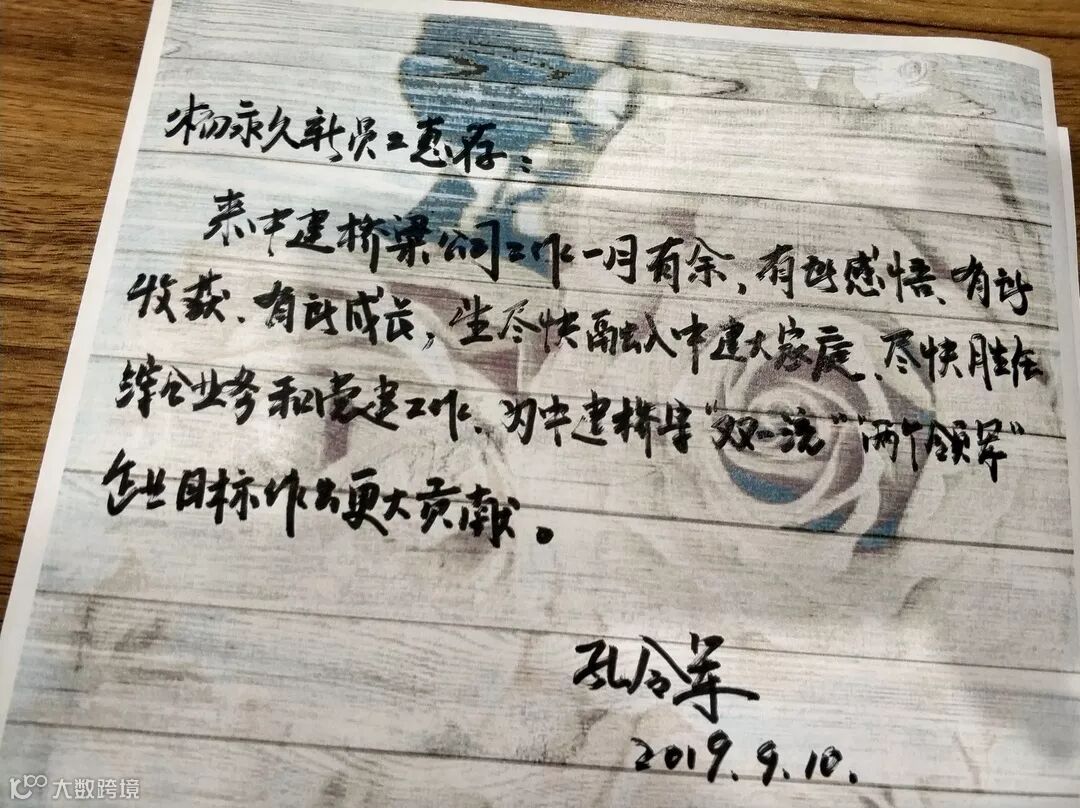 杨永久新员工惠存：
来中建桥梁公司工作一月有余，有所感悟、有所
收获、有所成长，望尽快融入中建大家庭、尽快胜任
综合业务和党建工作、为中建桥梁“双一流”“两个领军”
企业目标作出更大贡献。
孔令军
2019.9.10.
大数跨境